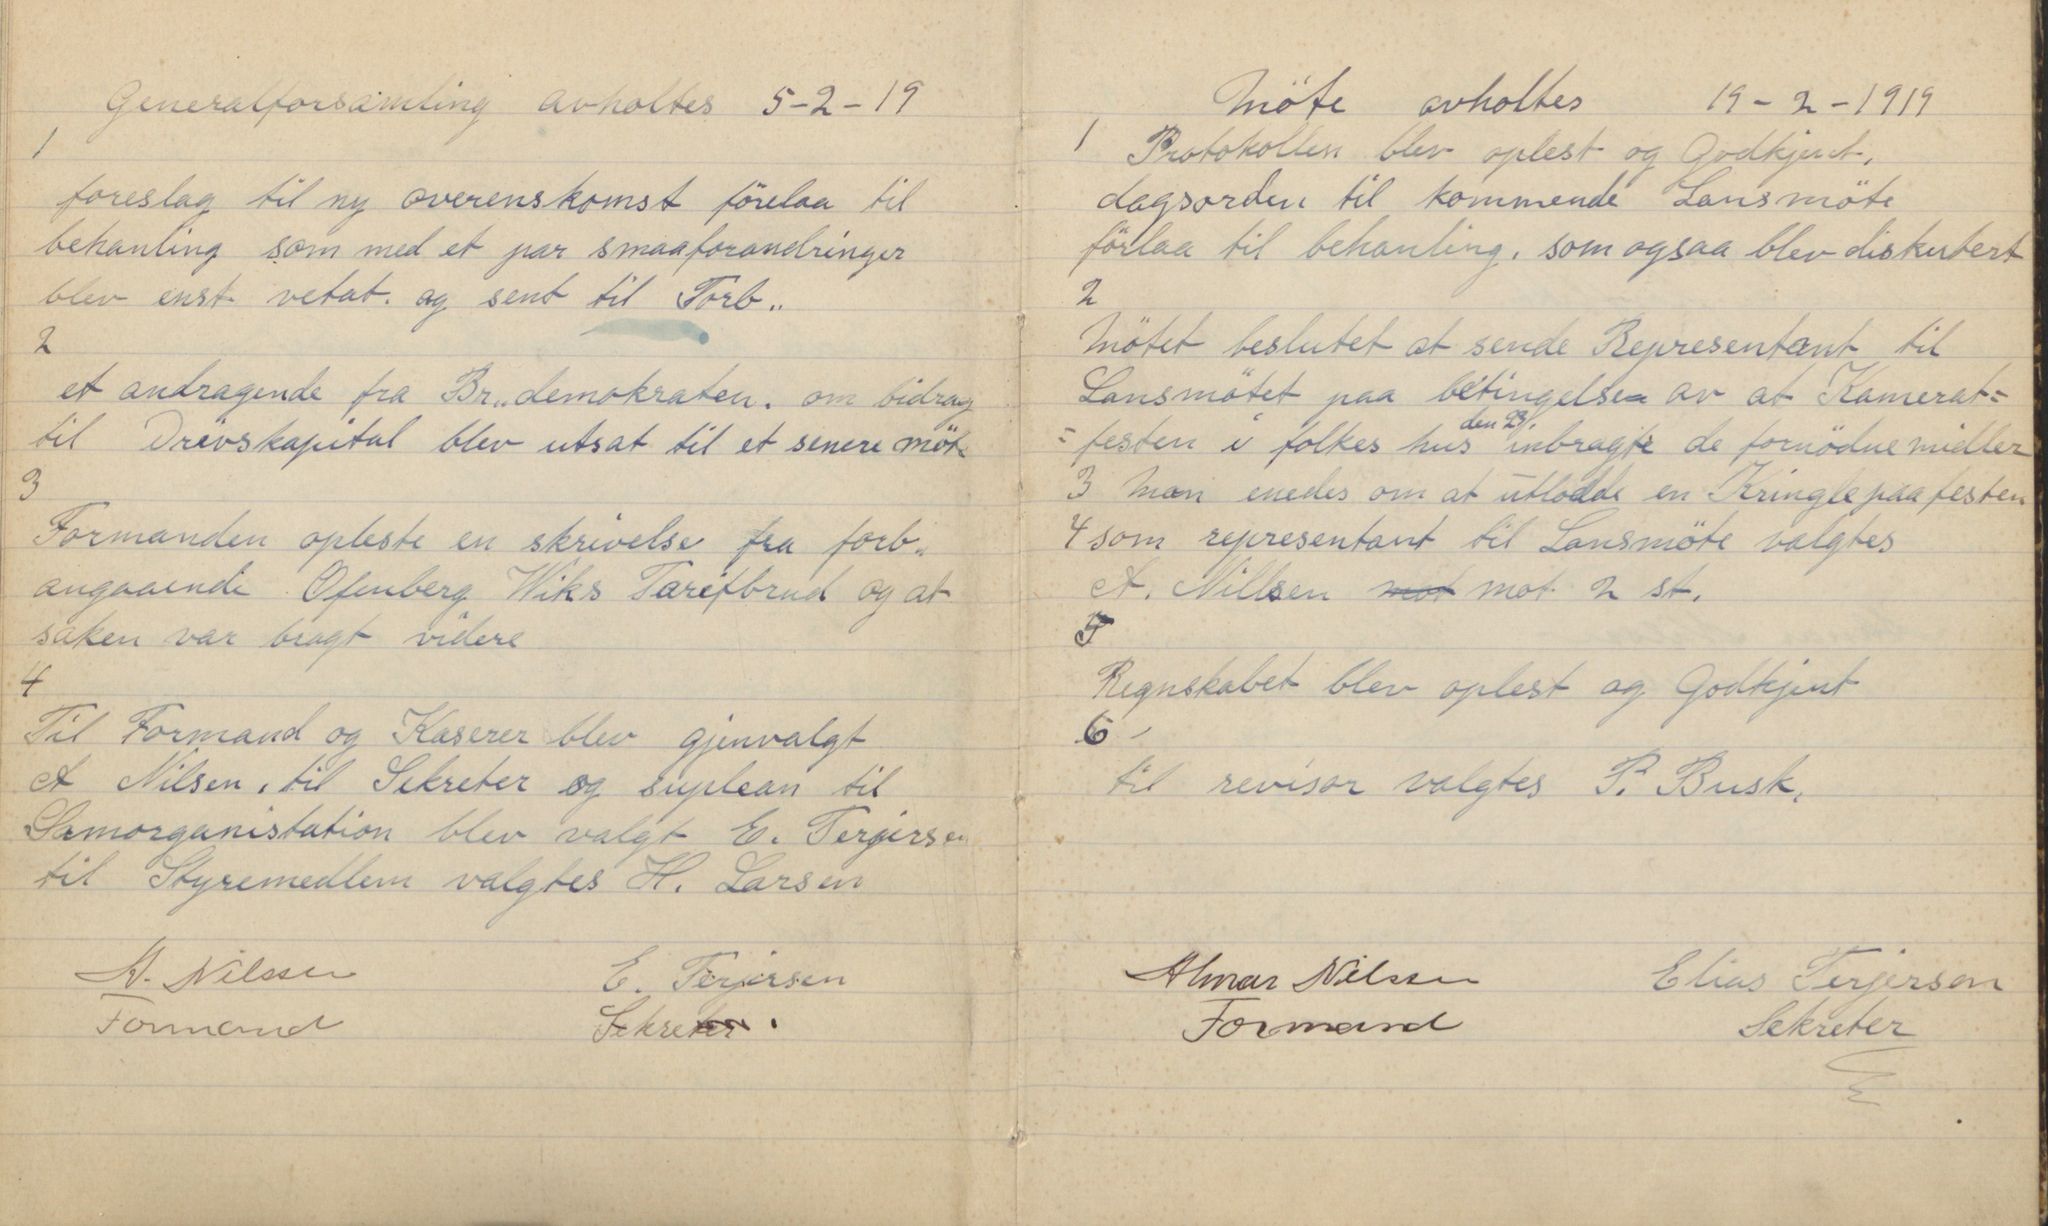 Generalforsamling avholtes 5-2-19
1
foreslag til ny overenskomst förelaa til
behanling som med et par smaaforandringer
blev enst. vetat. og sent til Forb..
2
et andragende fra Br..demokraten. om bidrag
til Drivskapital blev utsat til et senere möte
3
Formanden opleste en skrivelse fra forb..
angaaende Ofenberg Wiks Tarifbrud og at
saken var bragt videre
4
Til Formand og Kaserer blev gjenvalgt
A Nilsen. til Sekreter og suplean til
Samorganistation blev valgt E. Terjersen
til Styremedlem valgtes H. Larsen
A. Nilssen E. Terjersen
Formand Sekreter.
Möte avholtes 19-2-1919
1
Protokollen blev oplest og Godkjent.
dagsorden til kommende Lansmöte
förlaa til behanling. som ogsaa blev diskutert
2
Mötet beslutet at sende Representant til
Lansmötet paa betingelse av at Kamerat=
den 23/
=festen i folkes hus inbragte de fornödne midler
3 Man enedes om at utlodde en Kringle paa festen
4 som representant til Lansmöte valgtes
A. Nillsen mot mot 2 st.
5
Regnskabet blev oplest og Godkjent
6
til revisor valgtes P. Busk.
Almar Nilssen Elias Terjersen
Formand Sekreter